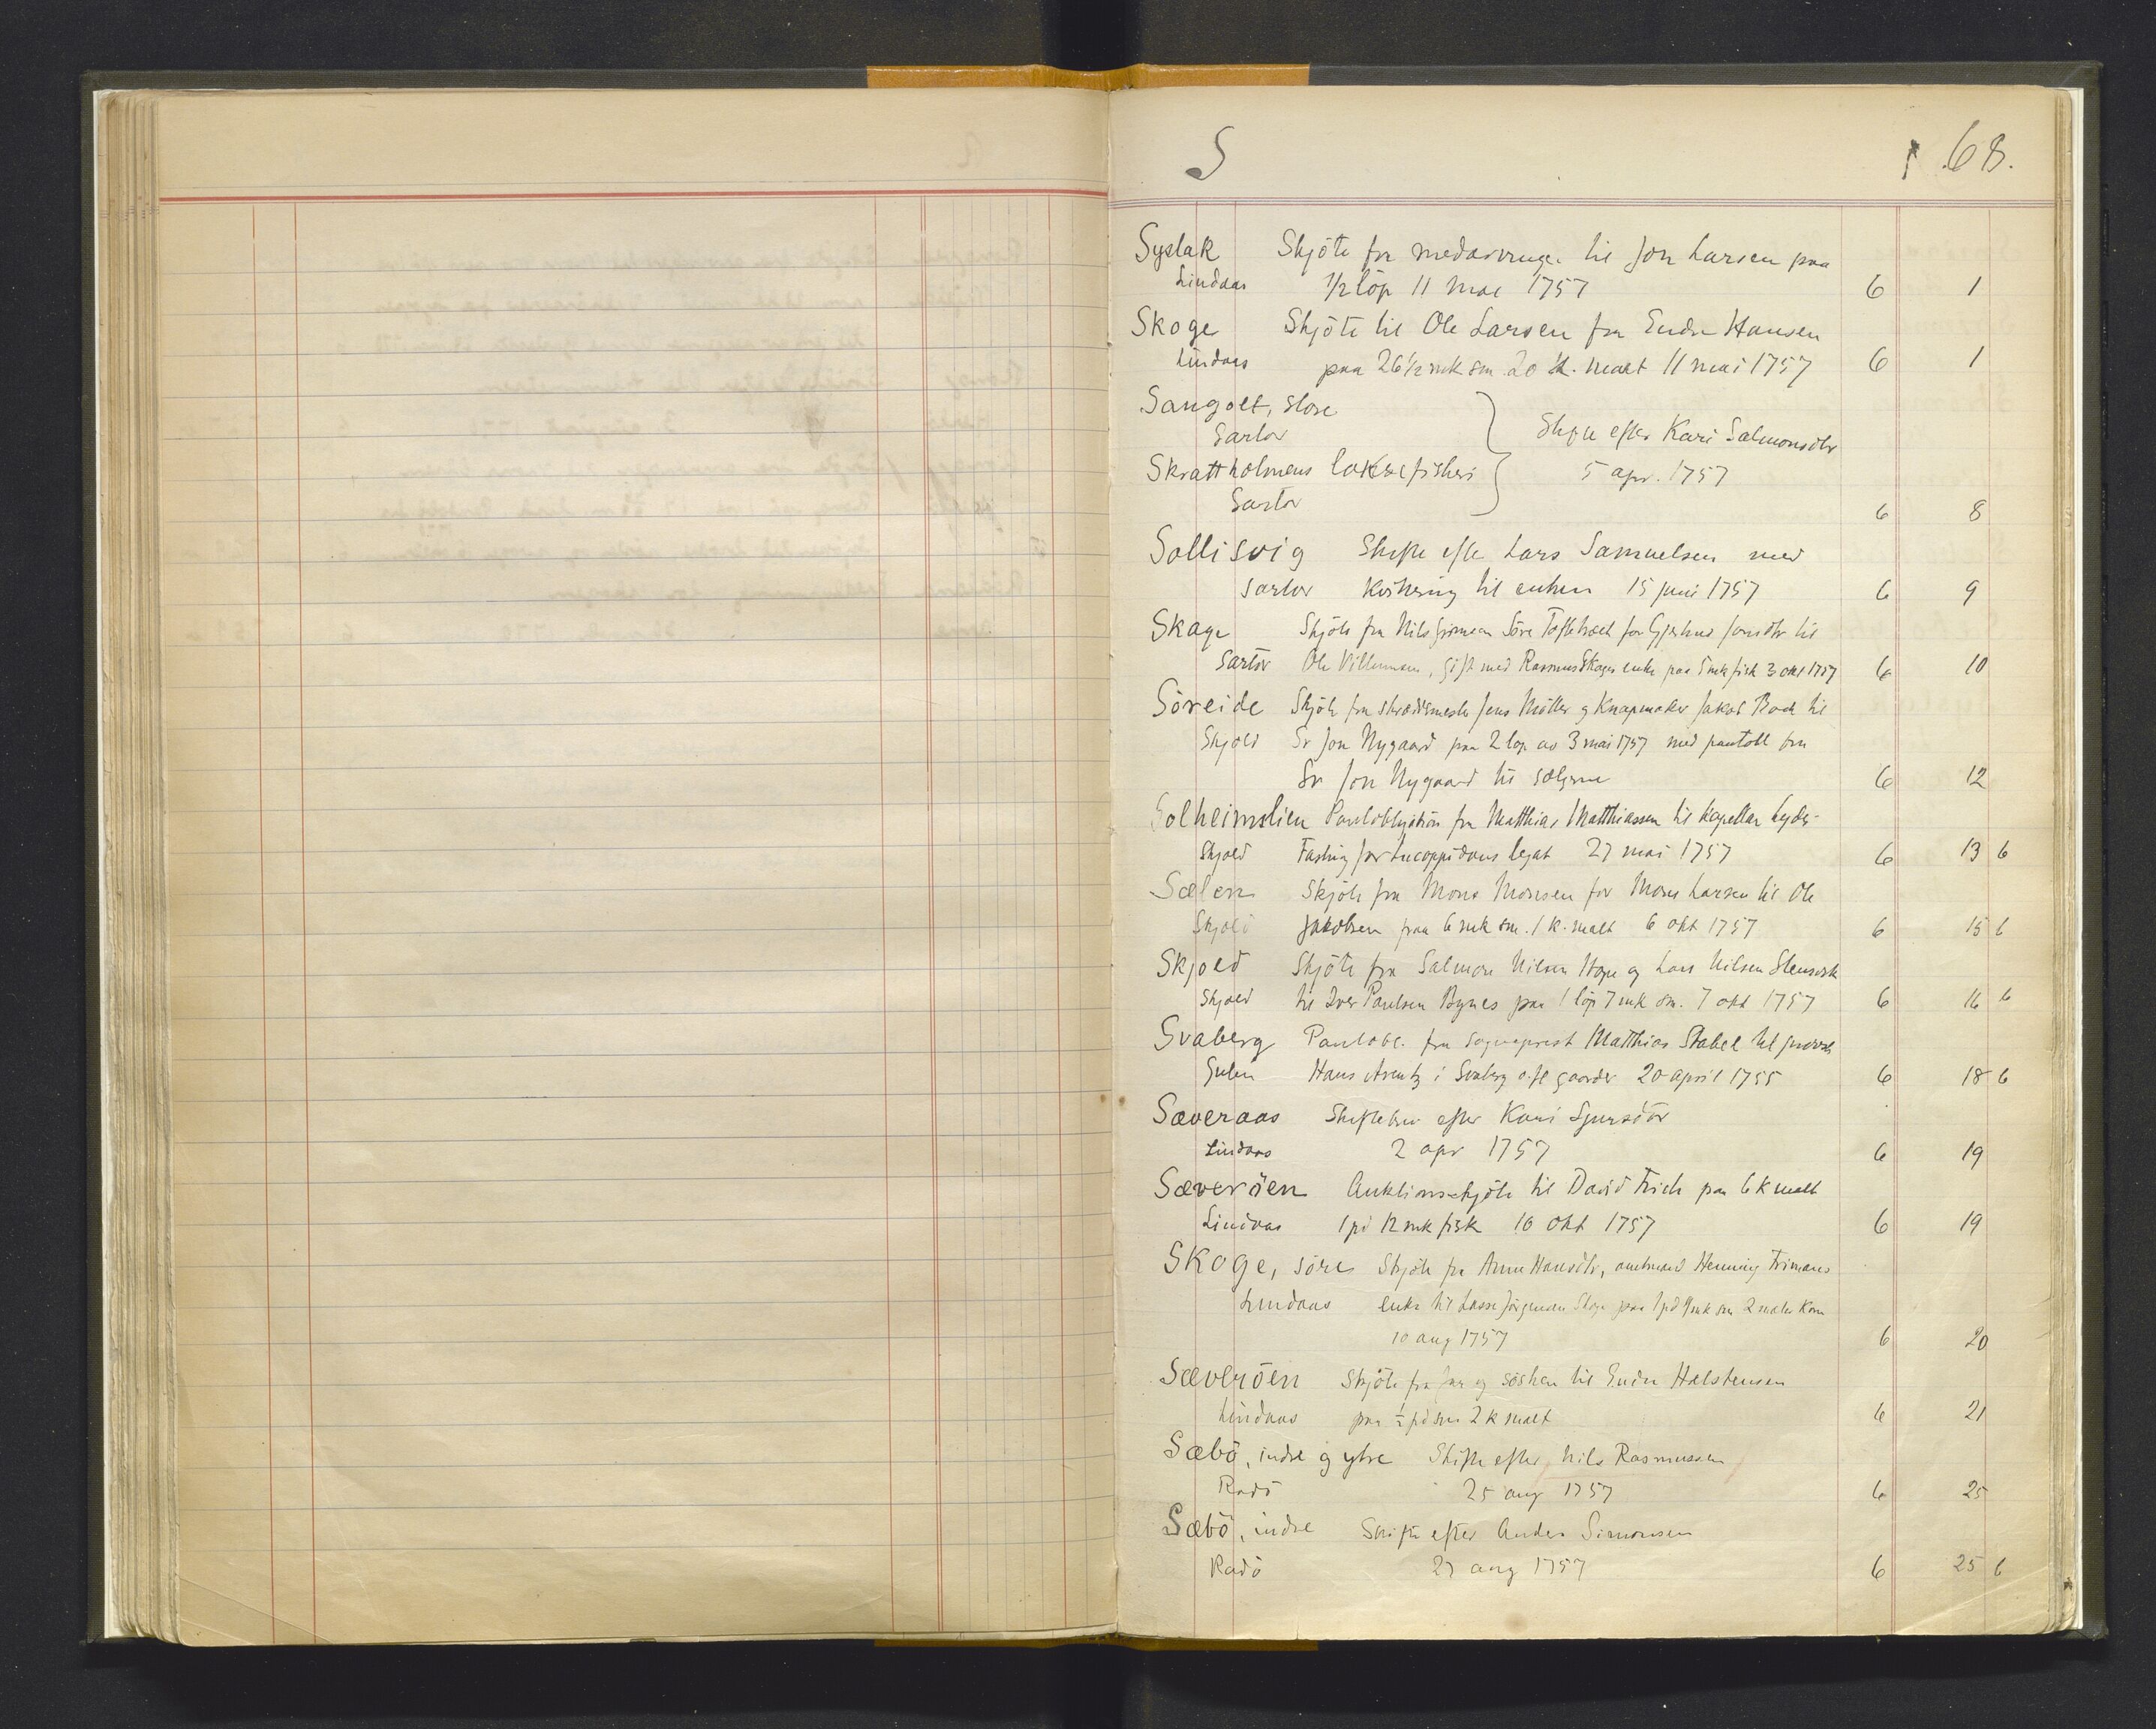 S 68.
Syslak Skjöte fra medarvinger til Jon Larsen paa
Lindaas 1/2 löp 11 mai 1757 6 1
Skoge Skjöte til Ole Larsen fra Endre Hansen
Lindaas paa 26 1/2 mk sm 20 k. malt 11 mai 1757 6 1
Sangolt, store
Sartor Skifte efter Kari Salmonsdtr
Skrattholmens laksefiskeri 5 apr. 1757
Sartor 6 8
Sollisvig Skifte efter Lars Samuelsen med
Sartor til enken 15 juni 1757 6 9
Skage Skjöte fra Nils söre for Gjertrud Jonsdtr til
Sartor Ole Villumsen, gift med Rasmus Skages enke paa 5 mk fisk 3 okt 1757 6 10
Söreide Skjöte fra Jens Möller og Knapmaker Jakob til
Skjold Sr Jon Nygaard paa 2 löp av 3 mai 1757 med pantobl fra
Sr Jon Nygaard til sælgerne 6 12
Solheimslien Pantobligation fra Matthias Matthiassen til Kapellan Lyder
Skjold Fasting for legat 27 mai 1757 6 13 b
Sælen Skjöte fra Mons Monsen for Mons Larsen til Ole
Skjold Jakobsen paa 6 mk sm. 1 k. malt 6 okt 1757 6 15 b
Skjold Skjöte fra Salmon Nilsen Hope og Lars Nilsen
Skjold til Iver Paulsen Bynes paa 1 löp 7 mk sm. 7 okt 1757 6 16 b
Svaberg Pantobl. fra Sogneprest Matthias Stabel til
Gulen Hans Arentz i Svaberg o. fl gaarder 20 april 1755 6 18 b
Sæveraas Skiftebrev efter Kari Sjursdtr
Lindaas 2 apr 1757 6 19
Sæveröen Auktionsskjöte til David Frich paa 6 k malt
Lindaas 1 pd 12 mk fisk 10 okt 1757 6 19
Skoge, söre Skjöte fra Anne Hansdtr, Henning Frimans
Lindaas enke til Lasse Jörgensen Skoge paa 1 pd 9 mk sm 2 korn
10 aug 1757 6 20
Sæveröen Skjöte fra og sösken til Endre Halstensen
Lindaas paa 1/2 pd sm 2 k malt 6 21
Sæbö, indre og ytre Skifte efter Nils Rasmussen
Radö 25 aug 1757 6 25
Sæbö, indre Skifte efter Anders Simonsen
Radö 27 aug 1757 6 25 b